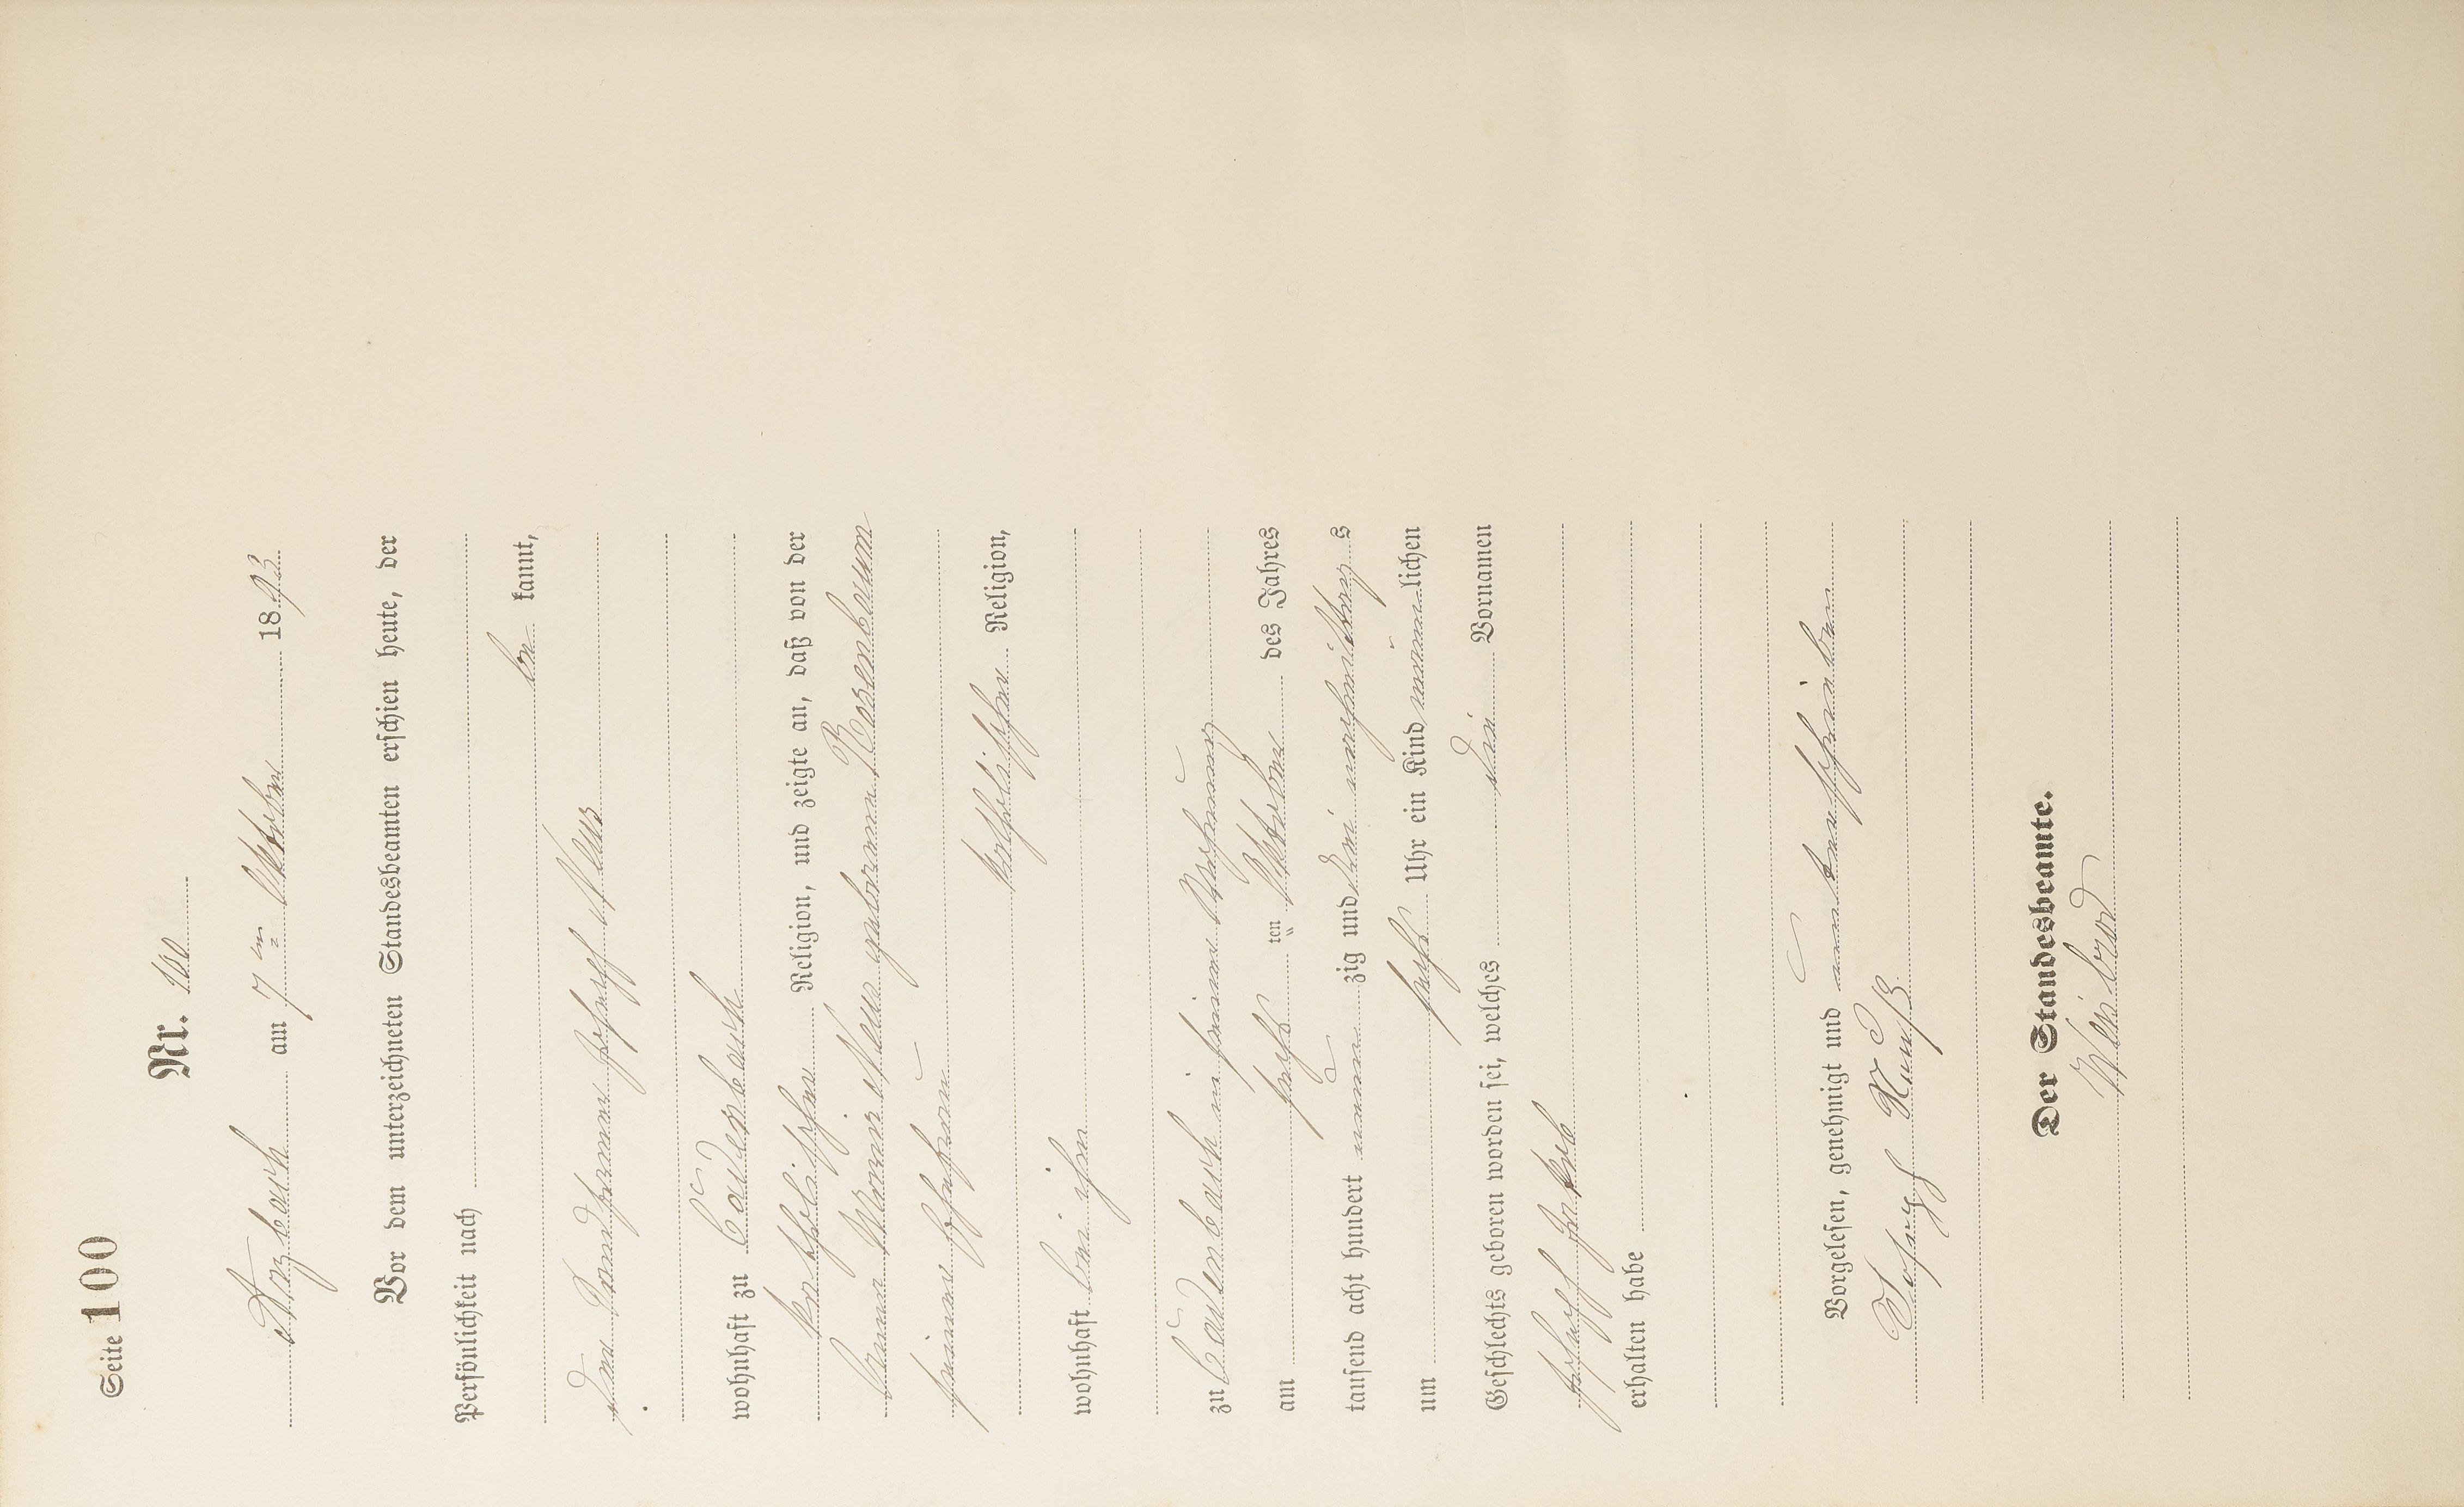 Seite 100
Nr. 100
Arzbach am 7ten Oktober 1893
Vor dem unterzeichneten Standesbeamten erschien heute, der
Persönlichkeit nach
be kannt,
der Landmann Joseph Neus
wohnhaft zu Cadenbach
katholischer Religion, und zeigte an, daß von der
Anna Maria Neus geborenen Rosenbaum
seiner Ehefrau
katholischer Religion,
wohnhaft bei ihm
zu Cadenbach in seiner Wohnung
am sechs ten Oktober des Jahres
tausend acht hundert neun zig und drei nachmittags
um sechs Uhr ein Kind männ lichen
Geschlechts geboren worden sei, welches die Vornamen
Joseph Jakob
erhalten habe
Vorgelesen, genehmigt und unterschrieben
Joseph
Der Standesbeamte.